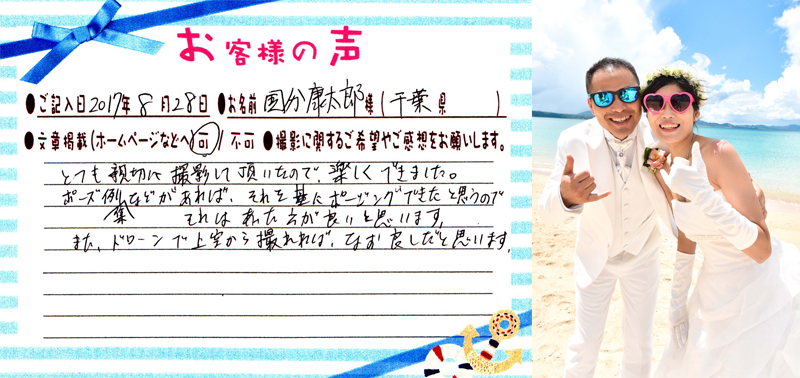 お客様の声
●ご記入日2017年8月28日 ●お名前 国分康太郎様(千葉県 )
●文章掲載(ホームページなどへ 可 / 不可 ●撮影に関するご希望やご感想をお願いします。
とても親切に撮影して頂いたので、楽しくできました。
ポーズ例などがあれば、それを基にポージングできたと思うので
集 それは あった方が良いと思います。
また、ドローンで上空から撮れれば、なお良しだと思います。